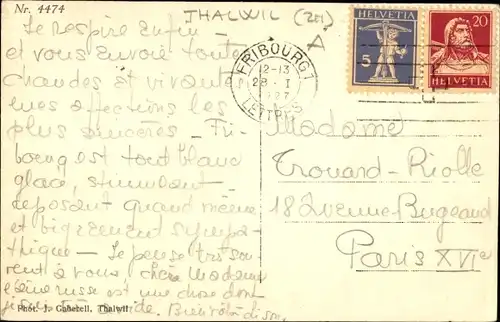 Nr. 4474
THALWIL (ZH)
Je respire enfin —
et vous envoie toutes
chaudes et vivantes
mes affections les
plus sincères — Fri-
bourg est tout blanc
glacé, stimulant
reposant quand même
et bigrement sympa-
thique — Je pense très sou-
vent à vous chère Madame
est une chose dont
Bientôt
Phot. J. Gaberell, Thalwil
HELVETIA
5
20
HELVETIA
FRIBOURG 1
12-13
28. I
1927
LETTRES
Madame
Trouard-Riolle
18 Avenue Bugeaud
Paris XVIe